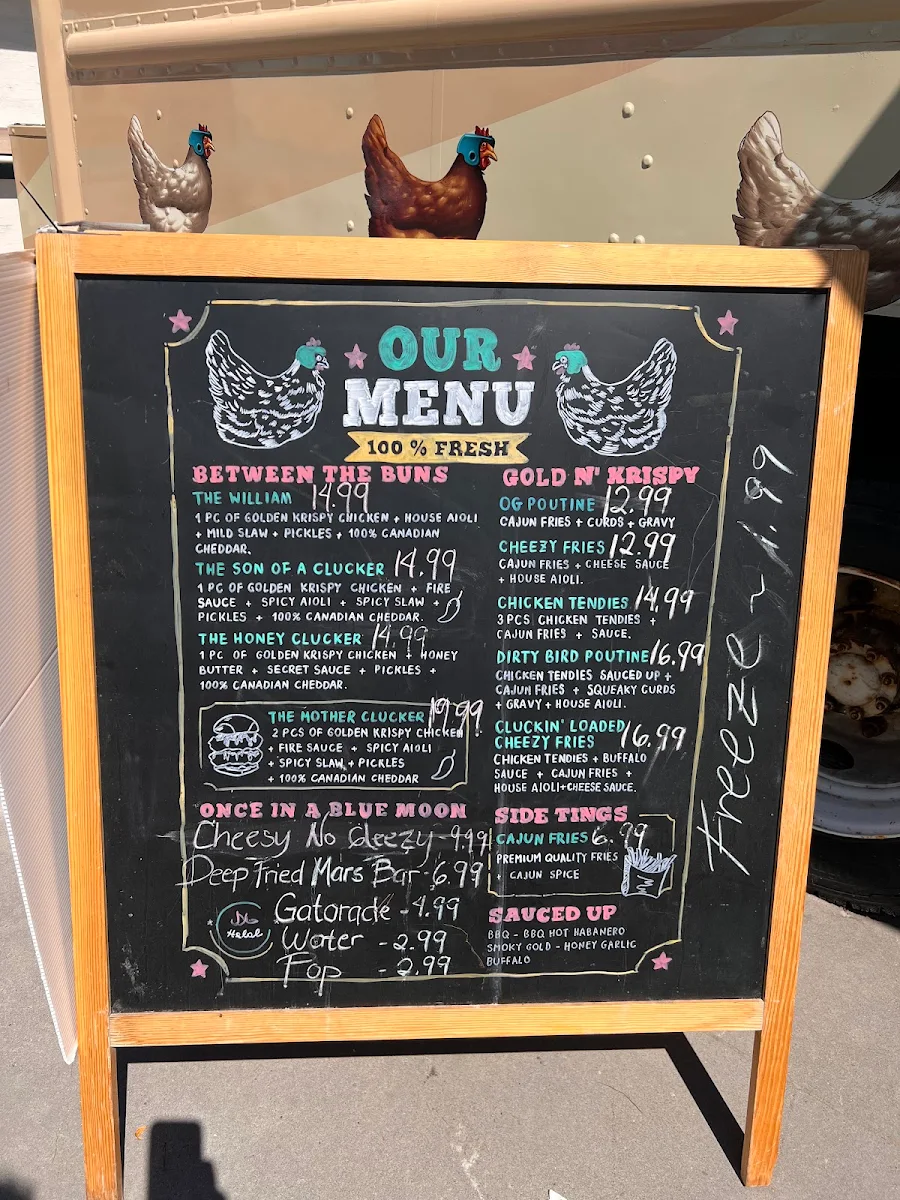 OUR
MENU
100 % FRESH
BETWEEN THE BUNS
THE WILLIAM 14.99
1 PC OF GOLDEN KRISPY CHICKEN + HOUSE AIOLI
+ MILD SLAW + PICKLES + 100% CANADIAN
CHEDDAR.
THE SON OF A CLUCKER 14.99
1 PC OF GOLDEN KRISPY CHICKEN + FIRE
SAUCE + SPICY AIOLI + SPICY SLAW +
PICKLES + 100% CANADIAN CHEDDAR.
THE HONEY CLUCKER 14.99
1 PC OF GOLDEN KRISPY CHICKEN + HONEY
BUTTER + SECRET SAUCE + PICKLES +
100% CANADIAN CHEDDAR.
THE MOTHER CLUCKER 19.99
2 PCS OF GOLDEN KRISPY CHICKEN
+ FIRE SAUCE + SPICY AIOLI
+ SPICY SLAW + PICKLES
+ 100% CANADIAN CHEDDAR
ONCE IN A BLUE MOON
Cheesy No Gleezy - 9.99
Deep Fried Mars Bar - 6.99
Gatorade - 4.99
Water - 2.99
Pop - 2.99
حلال
Halal
GOLD N' KRISPY
OG POUTINE 12.99
CAJUN FRIES + CURDS + GRAVY
CHEEZY FRIES 12.99
CAJUN FRIES + CHEESE SAUCE
+ HOUSE AIOLI.
CHICKEN TENDIES 14.99
3 PCS CHICKEN TENDIES +
CAJUN FRIES + SAUCE.
DIRTY BIRD POUTINE 16.99
CHICKEN TENDIES SAUCED UP +
CAJUN FRIES + SQUEAKY CURDS
+ GRAVY + HOUSE AIOLI.
CLUCKIN' LOADED
CHEEZY FRIES 16.99
CHICKEN TENDIES + BUFFALO
SAUCE + CAJUN FRIES +
HOUSE AIOLI+CHEESE SAUCE.
SIDE TINGS
CAJUN FRIES 6.99
PREMIUM QUALITY FRIES
+ CAJUN SPICE
SAUCED UP
BBQ - BBQ HOT HABANERO
SMOKY GOLD - HONEY GARLIC
BUFFALO
freeze ~ 1.99